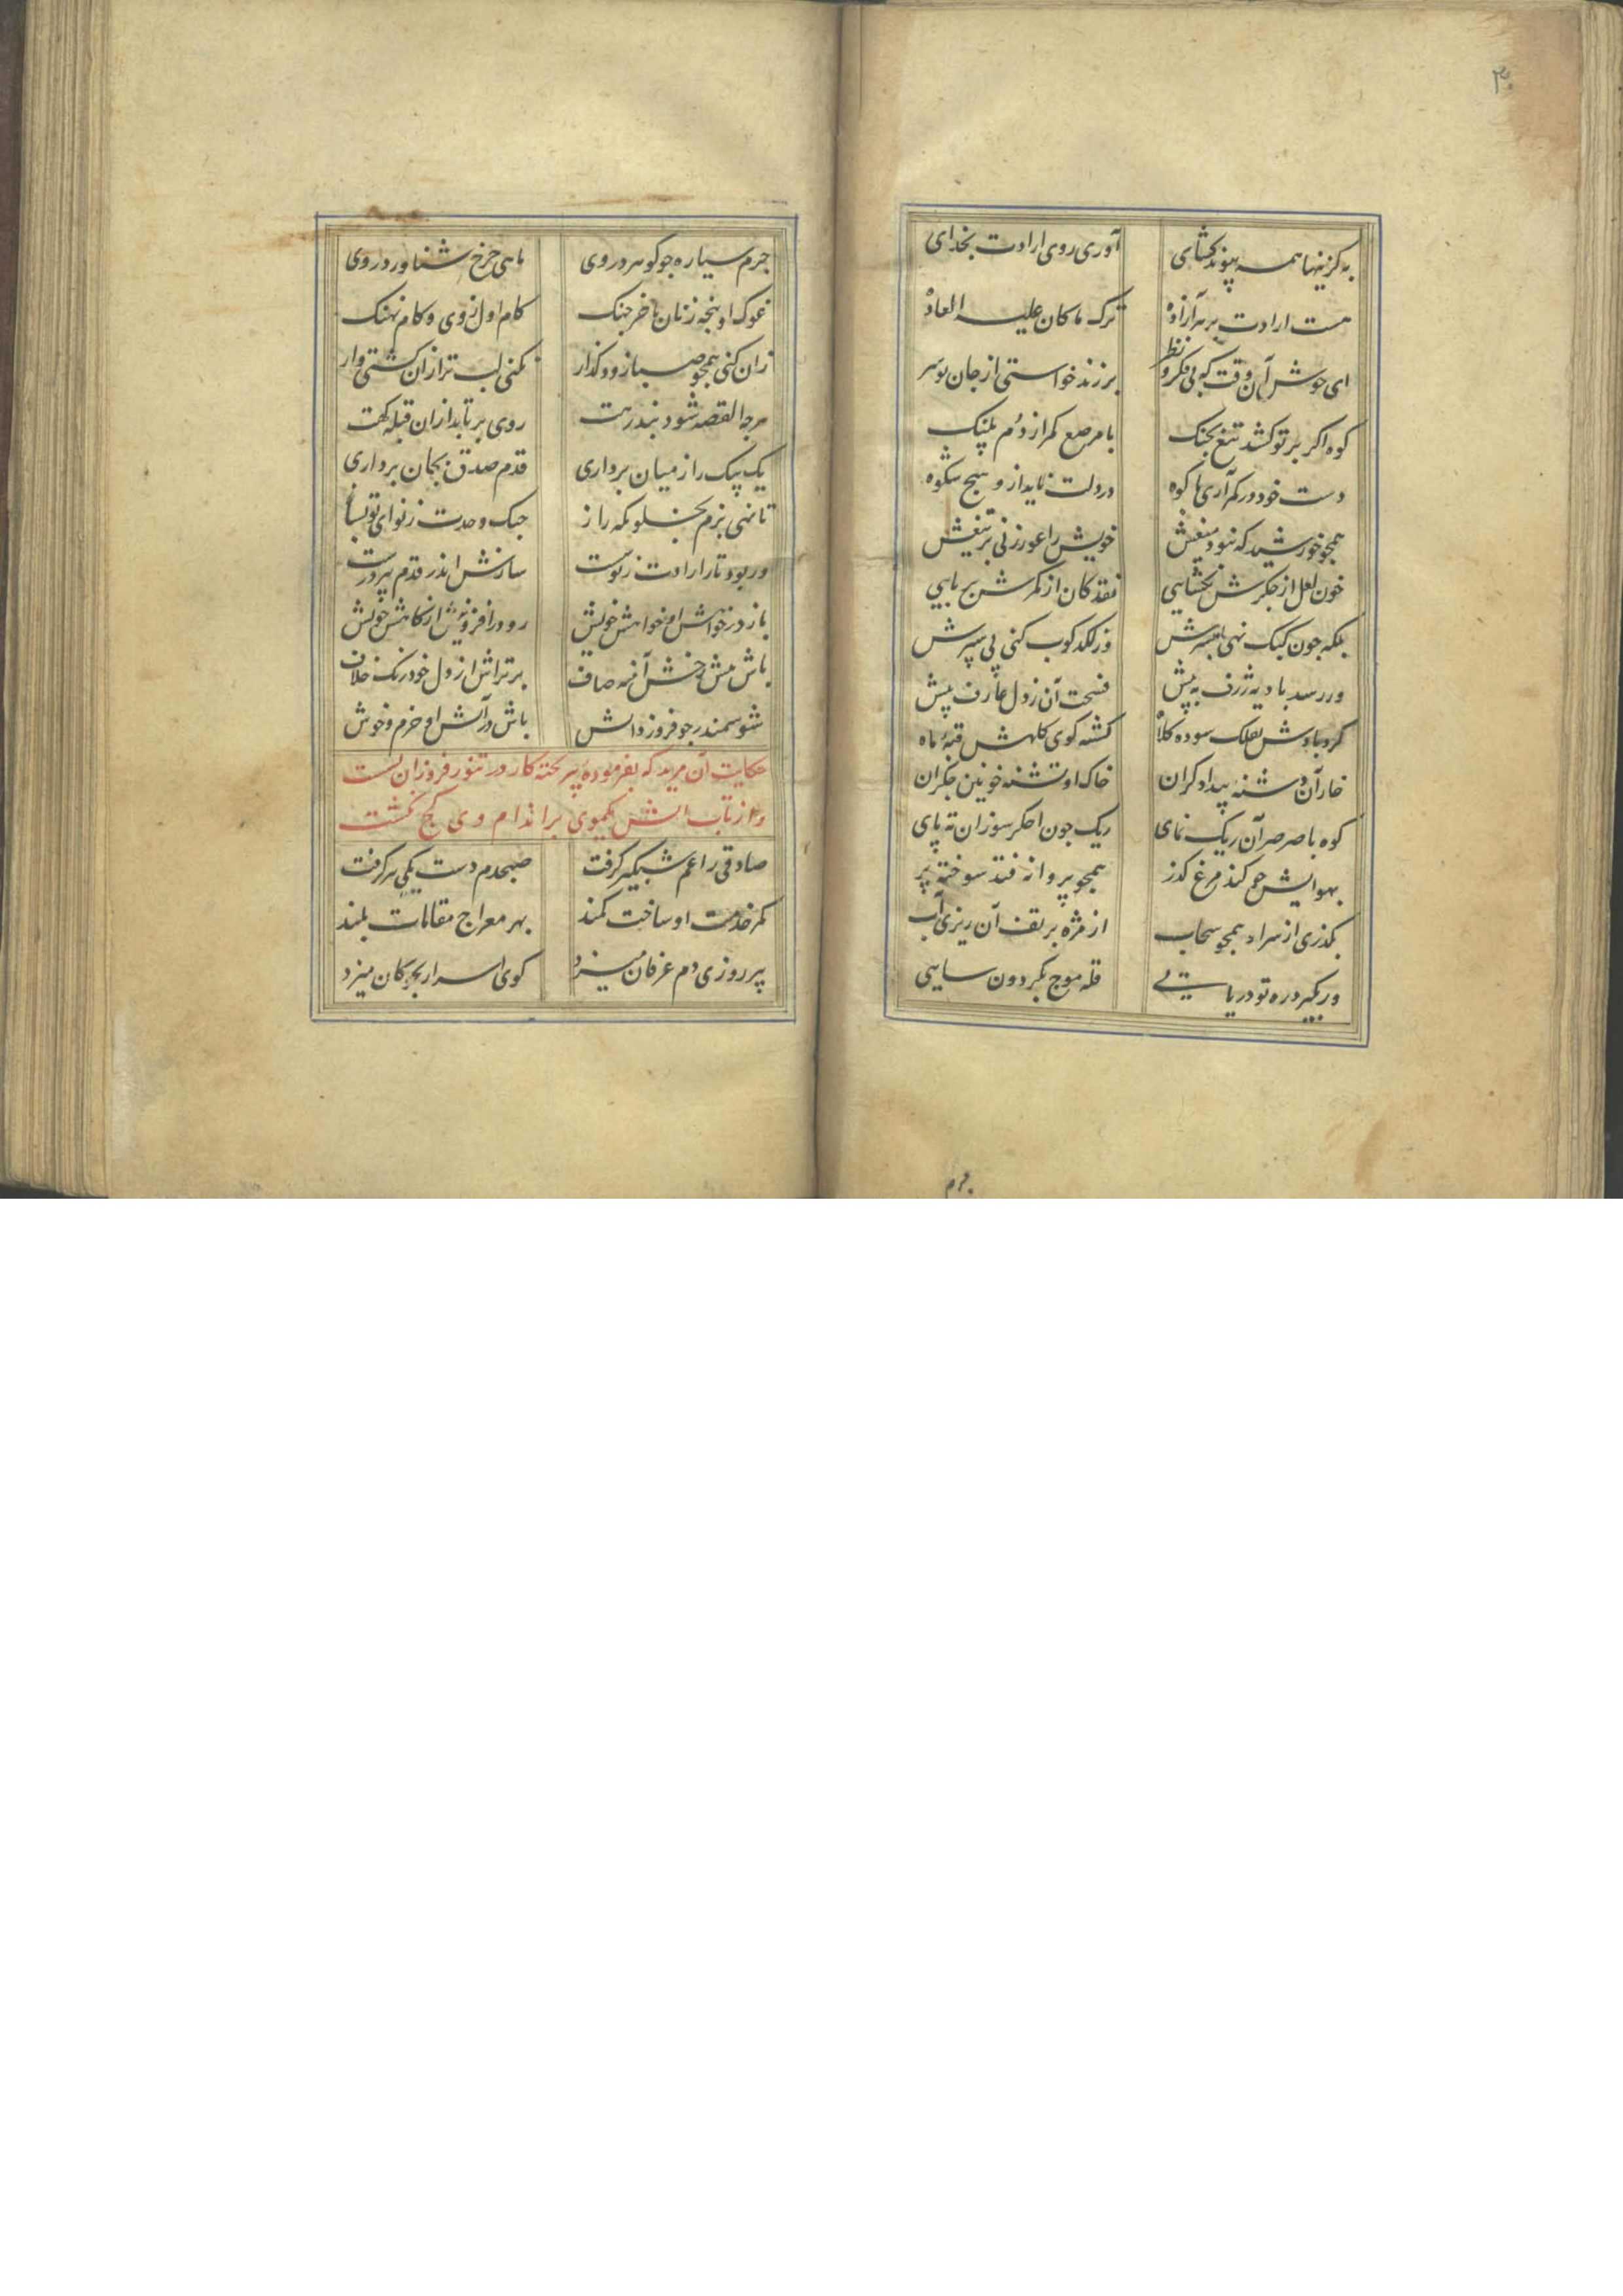 ۳۰
به کزینها همه پیوند کشای آوری روی ارادت بخدای
هست ارادت بر هر آزاده ترک ما کان علیه العاده
ای خوش آن وقت که بی فکر و نظر برزند خواستی از جان تو سر
کوه اکر بر تو کشد تیغ بجنک با مرصع کمر از دم پلنک
دست خود در کمر آری با کوه در دلت ناید ازو هیچ شکوه
همچو خورشید که نبود میغش خویش را عور زنی بر تیغش
خون لعل از جکرش بخشایی نقد کان از کمرش بربایی
بلکه چون کبک نهی پا بسرش وز لکدکوب کنی پی سپرش
ور رسد بادیه ژرف به پیش فسحت آن ز دل عارف بیش
کردبادش بفلک سوده کلاه کشته کوی کلهش قبه ماه
خار آن دشنه بیدادکران خاک او تشنه خونین جکران
کوه با صرصر آن ریک نمای ریک چون اخکر سوزان ته پای
بهوایش چو کند مرغ کذر همچو پروانه فتد سوخته پر
بکذری از سر او همچو سحاب از مژه بر تف آن ریزی آب
ور بکیرد ره تو دریایی قله موج بکردون سایی
جرم
جرم سیاره چو کوهر در وی ماهی چرخ شناور در وی
غوک او پنجه زنان با خرچنک کام اول ز وی و کام نهنک
زان کنی همچو صبا زود کذار نکنی لب تر ازان کشتی وار
هر چه القصه شود بند رهت روی برتابد ازان قبله کهت
یک بیک را ز میان برداری قدم صدق بجان برداری
تا نهی بزم بخلوتکه راز چنک وحدت ز نوای تو بساز
ور بود تار ارادت ز تو سست سازش اندر قدم پیر درست
باز در خواهش او خواهش خویش رو در افزونیش از کاهش خویش
باش پیش رخش آینه صاف برتراش از دل خود رنک خلاف
شو سمندر چو فروزد آتش باش در آتش او خرم و خوش
حکایت آن مرید که بفرموده پیر پخته کار در تنور فروزان نشست
و از تاب آتش یکموی بر اندام وی کج نکشت
صادقی را غم شبکیر کرفت صبحدم دست یکی پیر کرفت
کمر خدمت او ساخت کمند بهر معراج مقامات بلند
پیر روزی دم عرفان میزد کوی اسرار بچوکان میزد